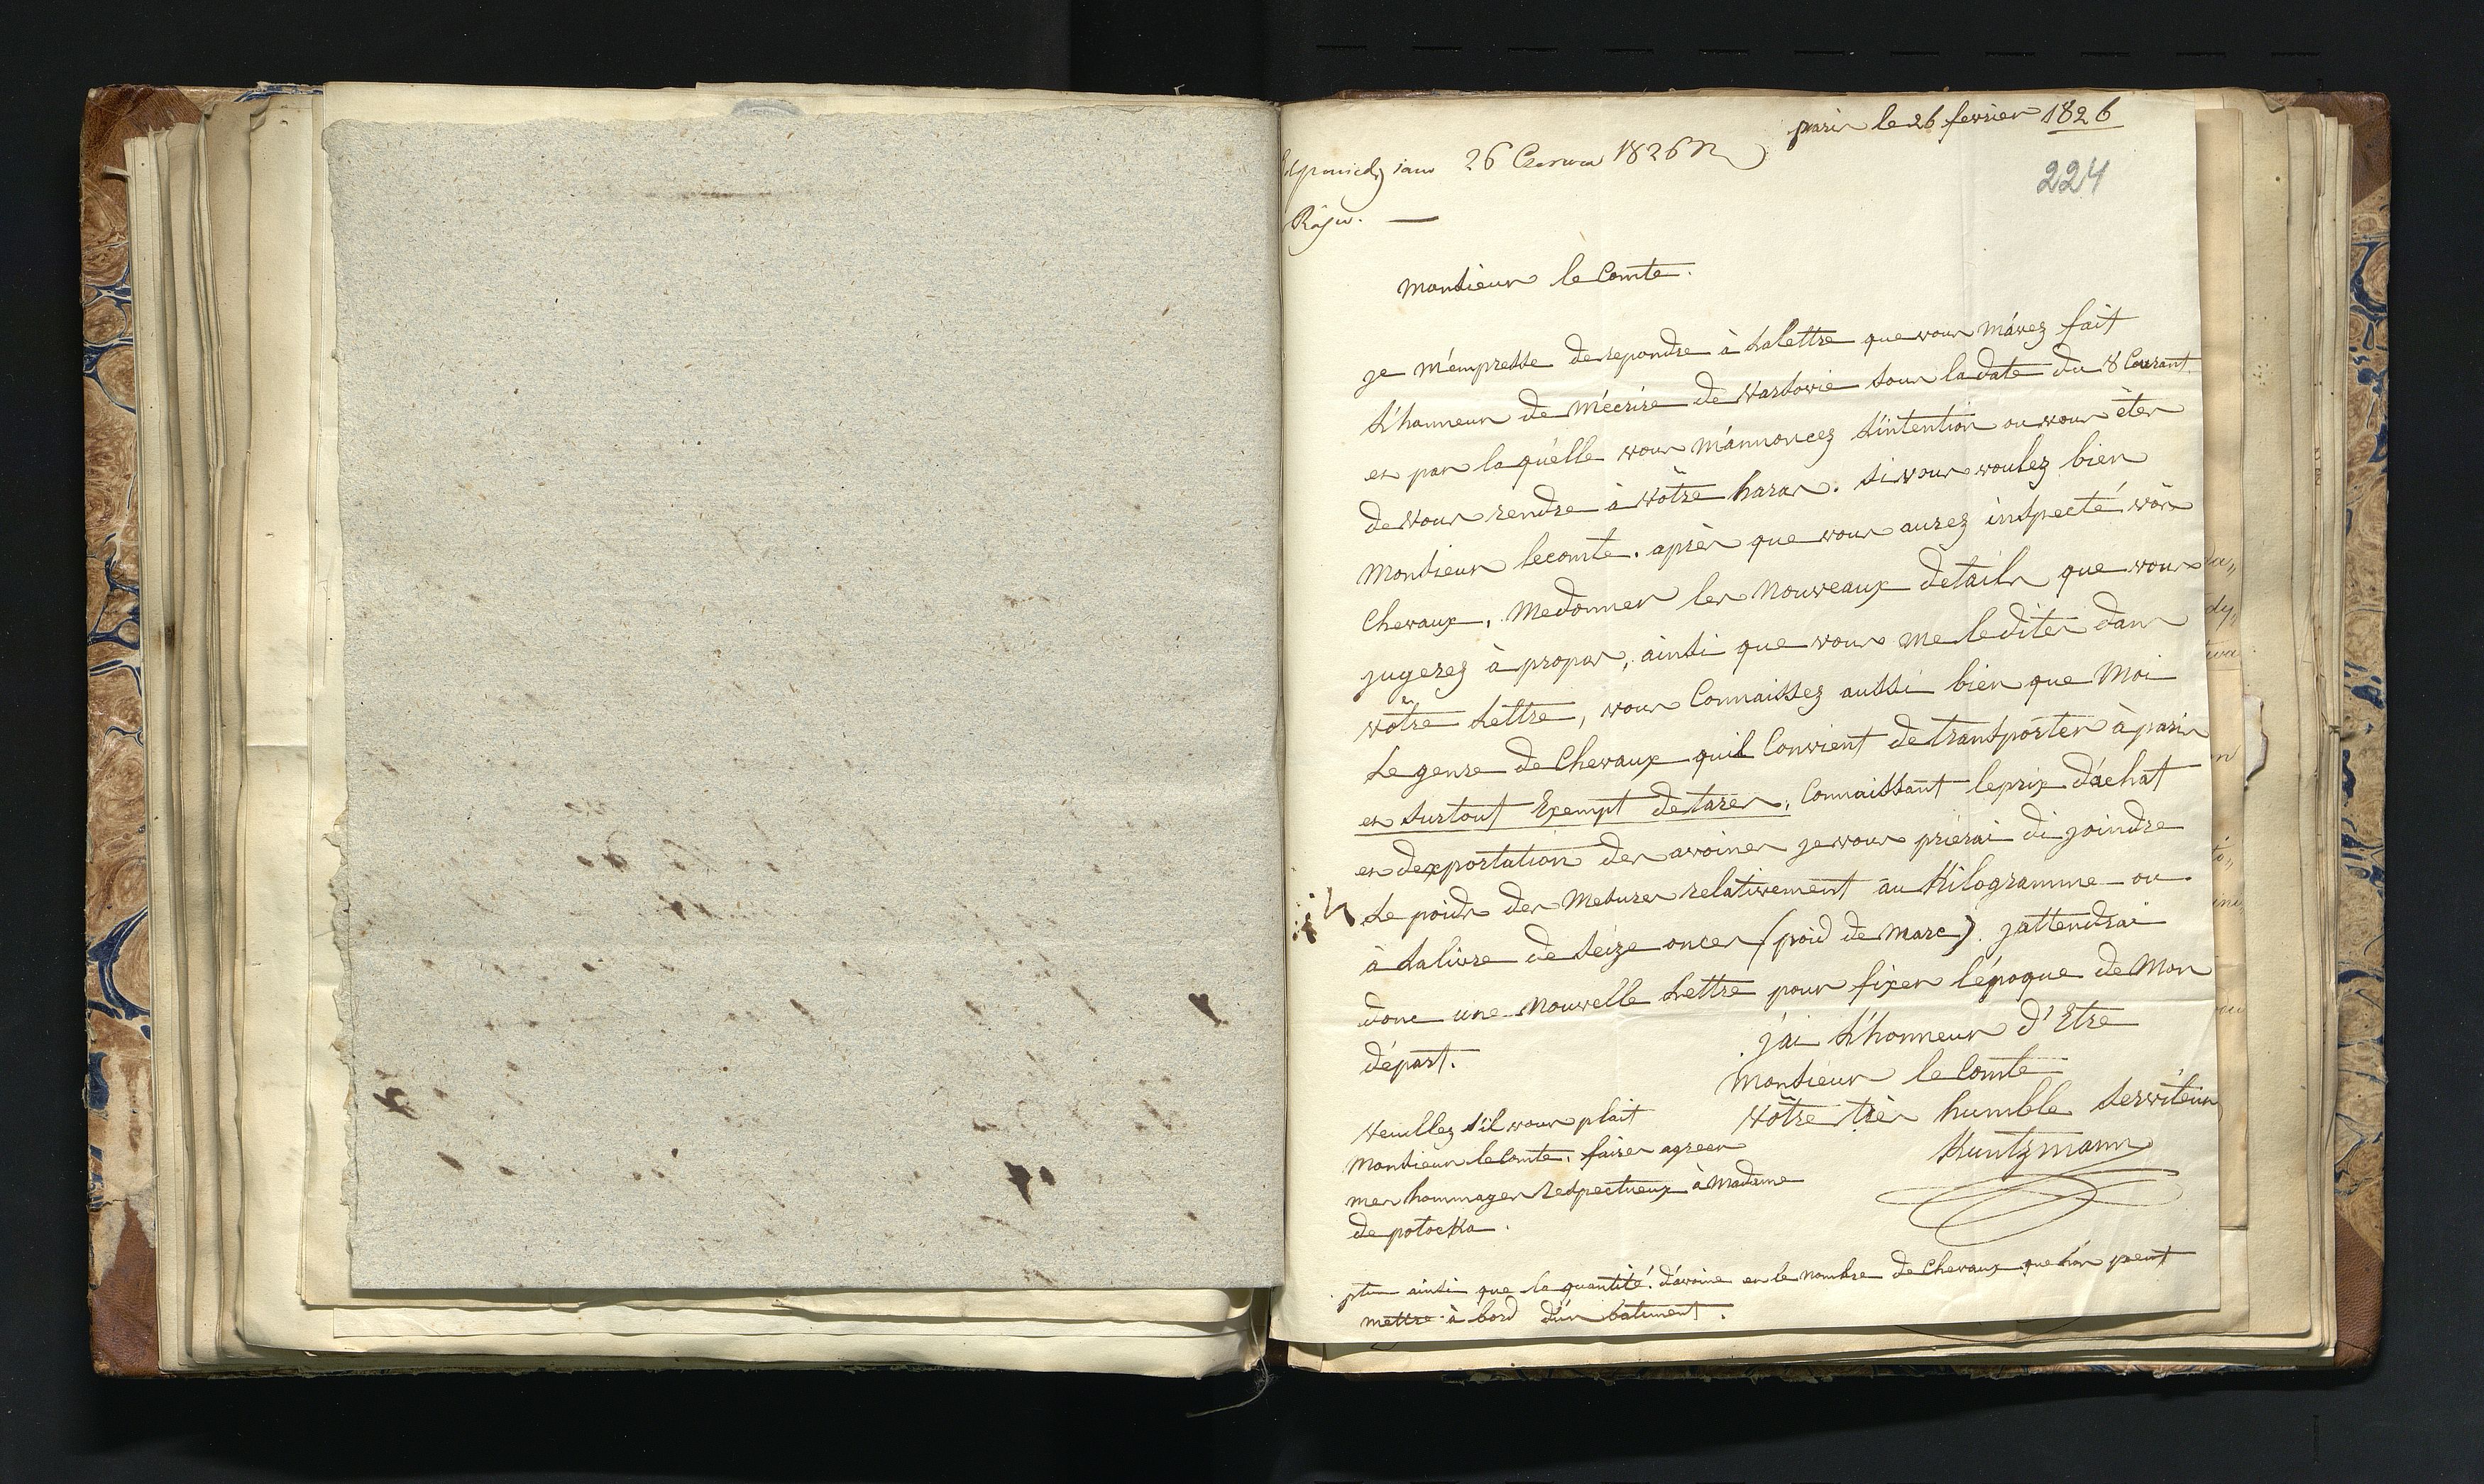 paris le 26 fevrier 1826
26 Czerwca 1826 R
224
Monsieur le Comte.
je m'empresse de repondre à la lettre que vous m'avez fait
L'honneur de m'écrire de Varsovie sous la date du 8 Courant
et par laquélle vous m'annoncez L'intention ou vous êtes
de vous rendre à vôtre haras. si vous voulez bien
Monsieur le comte. après que vous aurez inspecté vôs
Chevaux, me donner les nouveaux détails que vous
jugerez à propos, ainsi que vous me le dites dans
vôtre Lettre, vous Connaissez aussi bien que Moi
Le genre de Chevaux quil Convient de transporter à paris
et surtout Exempt de tares, Connaissant le prix d'achat
et dexportation des avoines je vous prierai di joindre
Le poids des Mesures relativement au Kilogramme ou
à La livre de seize onces (poid de marc). j'attendrai
donc une nouvelle Lettre pour fixer l'époque de Mon
départ.
j'ai L'honneur d'Etre
Monsieur le Comte
Vôtre très humble serviteur
Kuntzmann
Veuillez s'il vous plait
Monsieur le Comte, faire agréer
mes hommages respectueux à Madame
de potocka.
ainsi que la quantité d'avoine et le nombre de Chevaux que l'on peut
mettre à bord d'un batiment.